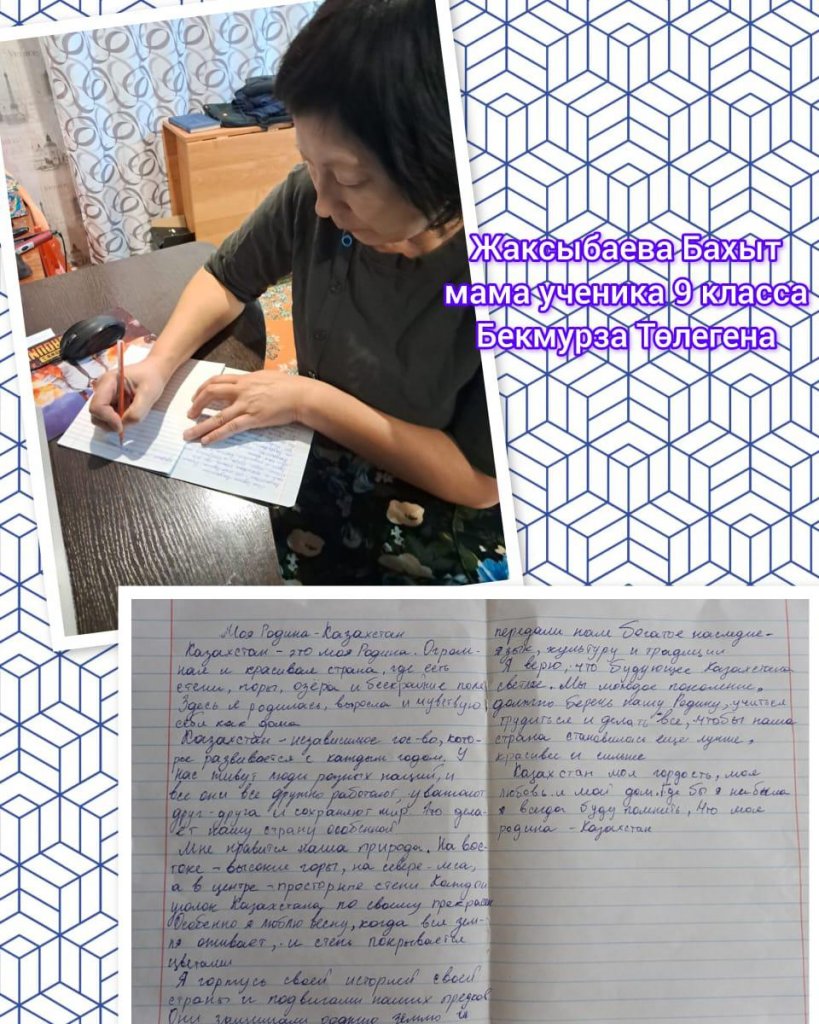 Жаксыбаева Бахыт
мама ученика 9 класса
Бекмурза Төлегена
Моя Родина - Казахстан
Казахстан - это моя Родина. Огром-
ная и красивая страна, где есть
степи, горы, озёра и бескрайние поля
Здесь я родилась, выросла и чувствую
себя как дома
Казахстан - независимое гос-во, кото-
рое развивается с каждым годом. У
нас живут люди разных наций, и
все они все дружно работают, уважают
друг-друга и сохраняют мир. Это дела-
ет нашу страну особенной.
Мне нравится наша природа. На вос-
токе - высокие горы, на севере - леса,
а в центре - просторные степи Каждый
уголок Казахстана, по своему прекрасен
Особенно я люблю весну, когда вся зем-
ля оживает, и степь покрывается
цветами
Я горжусь своей историей своей
страны и подвигами наших предков
Они защищали родную землю и
передали нам богатое наследие-
язык, культуру и традиции
Я верю, что будующее Казахстана
светлое. Мы молодое поколение,
должно беречь нашу Родину, учиться
трудиться и делать все, чтобы наша
страна становилась еще лучше,
красивее и сильнее
Казахстан моя гордость, моя
любовь и мой дом. Где бы я не была
я всегда буду помнить, что моя
родина - Казахстан